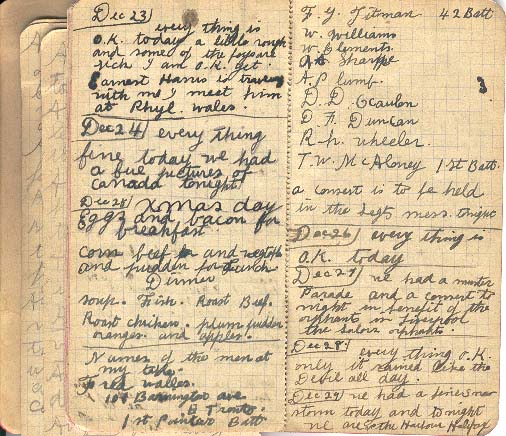 Dec 23/
every thing is
O.K. today a little rough
and some of the boys are
sick I am O.K. yet.
Earnest Harris is traveling
with me, I meet him
at Rhyl. wales.
Dec 24/ every thing
fine today we had
a five pictures of
canada tonight
Dec 25/ Xmas day
Eggs and bacon for
breakfast
corn beef and vegetable
and pudden for Lunch
Dinner
soup. Fish. Roast Beef.
Roast chicken. plum pudden
oranges. and apples.
Names of the men at
my table.
Fred walles.
109 Barington ave
E Tronto.
1st Pointers Batt
F. Y. Titman 42 Batt
W. Williams
W. Clements.
sharpe
A. P. limb.
D. D.
D. F. Duncan
R. h. wheeler.
T. W. McAloney 1st Batt.
a consert is to be held
in the Segts mess. tonight
Dec 26/ every thing is
O.K. today
Dec 27/ we had a muster
Parade and a consert to
night in benefit of the
orphants in Liverpool
the Salors orphants.
Dec 28/ every thing O.K.
only it rained like the
Devil all day.
Dec 29/ we had a snow
storm today and tonight
we are Harbour Halifax